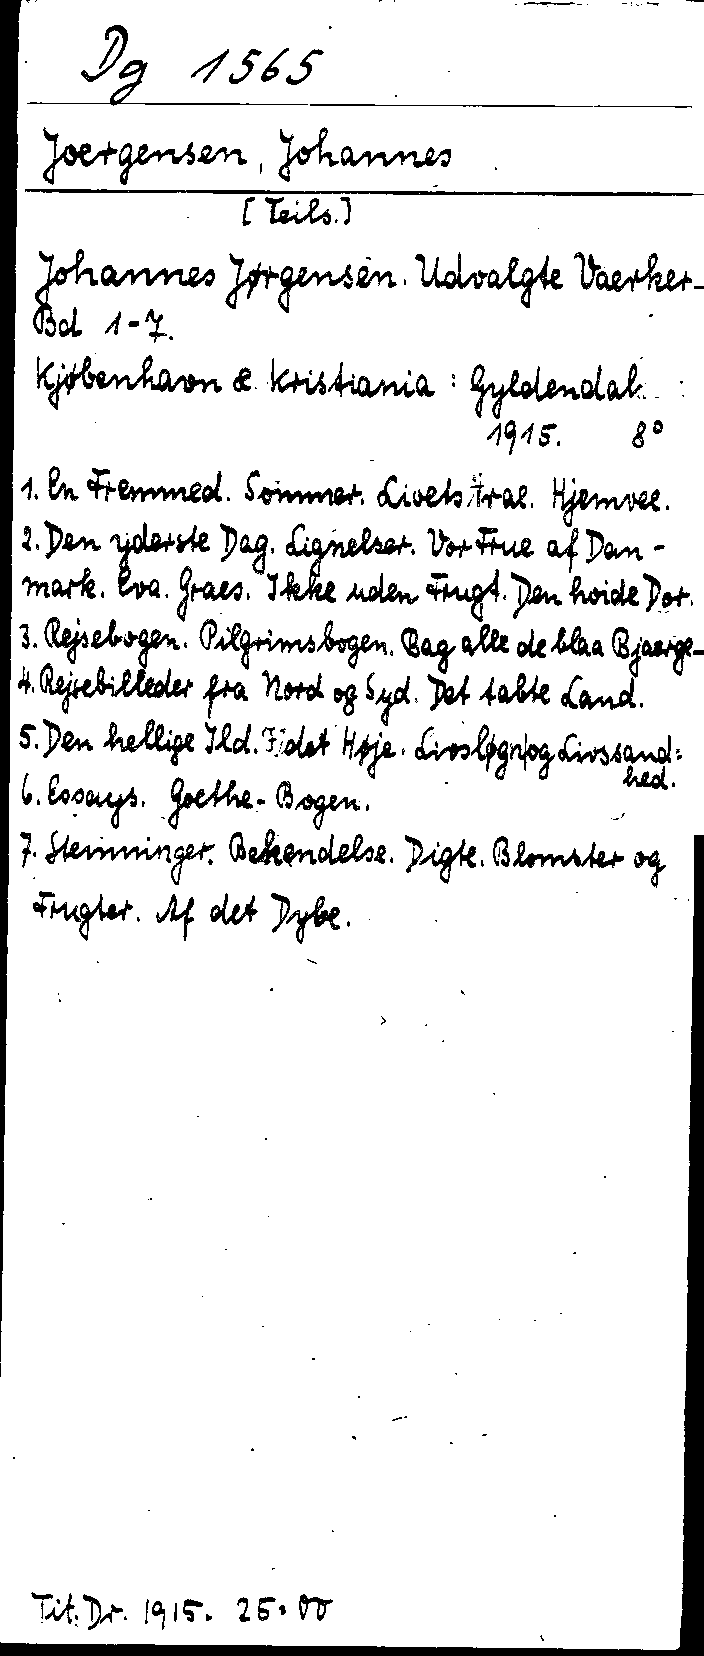 Dg 1565
Joergensen, Johannes
[Teils.]
Johannes Jørgensen. Udvalgte Vaerker.
Bd 1-7.
Kjøbenhavn & Kristiania : Gyldendal.
1915. 8°
1. En Fremmed. Sommer. Livets trae. Hjemvee.
2. Den yderste Dag. Lignelser. Vor Frue af Dan-
mark. Eva. Graes. Ikke uden Frugt. Den hoide Dor.
3. Rejsebogen. Pilgrimsbogen. Bag alle de blaa Bjaerge.
4. Rejsebilleder fra Nord og Syd. Det tabte Land.
5. Den hellige Ild. I det Høje. Livsløgn og Livssand=
hed.
6. Essays. Goethe-Bogen.
7. Stemninger. Bekendelse. Digte. Blomster og
Frugter. Af det Dybe.
Tit. Dr. 1915. 25.00